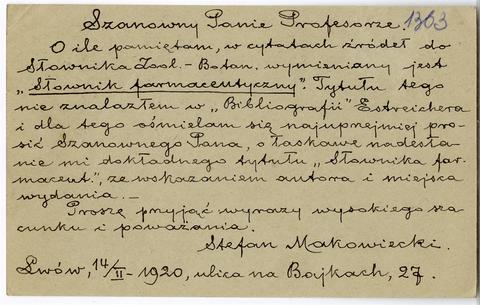 Szanowny Panie Profesorze. 1363
O ile pamiętam, w cytatach źródeł do
Słownika Zool.-Botan. wymieniany jest
„Słownik farmaceutyczny". Tytułu tego
nie znalazłem w „Bibliografii" Estreichera
i dla tego ośmielam się najuprzejmiej pro-
sić Szanownego Pana, o łaskawe nadesła-
nie mi dokładnego tytułu „Słownika far-
maceut.", ze wskazaniem autora i miejsca
wydania.–
Proszę przyjąć wyrazy wysokiego sza
cunku i poważania.
Stefan Makowiecki.
Lwów, 14/II–1920, ulica na Bajkach, 27.